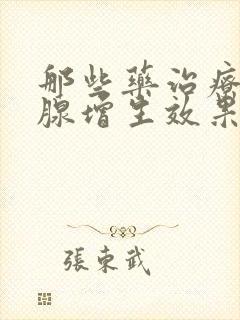 那些藥治療
腺增生效果
張東武